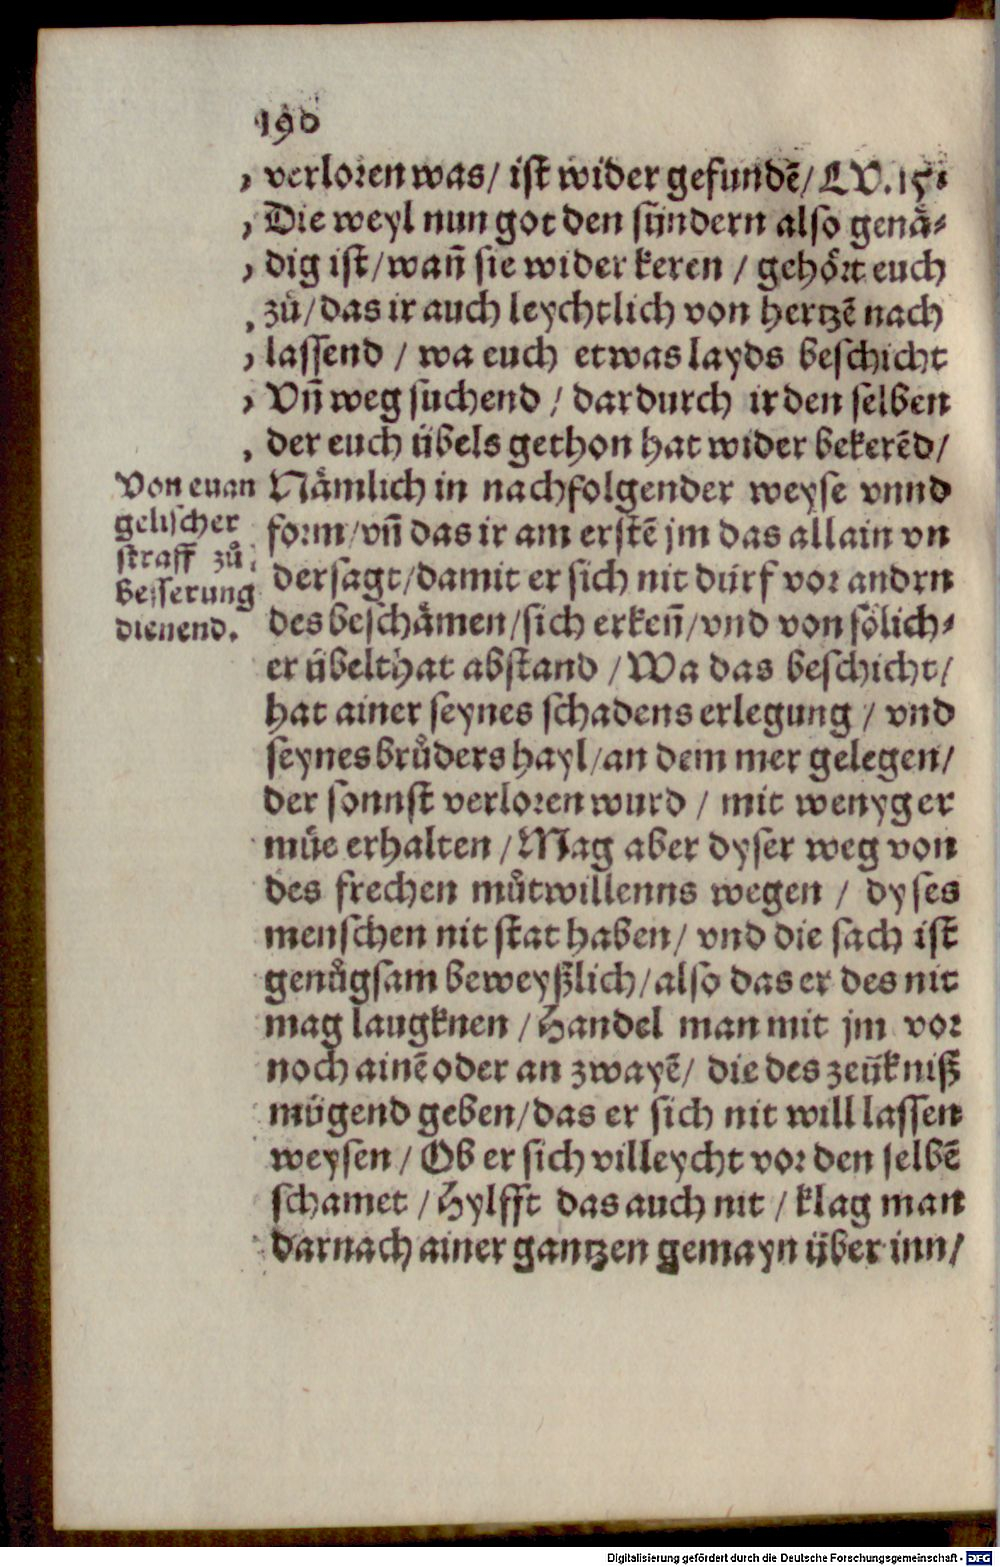 190
, verloren was/ ist wider gefundē/ LV. 15.
, Die weyl nun got den sündern also genå-
, dig ist/wañ sie wider keren / gehört euch
, zů/das ir auch leychtlich von hertzē nach
, lassend / wa euch etwas layds beschicht
, Vñ weg suchend / dardurch ir den selben
, der euch übels gethon hat wider bekerēd/
Nämlich in nachfolgender weyse vnnd
form/vñ das ir am erstē jm das allain vn
dersagt/damit er sich nit dürf vor andrn
des beschämen/sich erkeñ/vnd von sölich-
er übelthat abstand / Wa das beschicht/
hat ainer seynes schadens erlegung / vnd
seynes brůders hayl/an dem mer gelegen/
der sonnst verloren wurd / mit wenyger
müe erhalten / Mag aber dyser weg von
des frechen můtwillenns wegen / dyses
menschen nit stat haben/ vnd die sach ist
genůgsam beweyßlich/also das er des nit
mag laugknen / Handel man mit jm vor
noch ainē oder an zwayē/ die des zeükniß
mügend geben/das er sich nit will lassen
weysen / Ob er sich villeycht vor den selbē
schamet / Hylfft das auch nit / klag man
darnach ainer gantzen gemayn über inn/
Von euan
gelischer
straff zů
besserung
dienend.
Digitalisierung gefördert durch die Deutsche Forschungsgemeinschaft - DFG